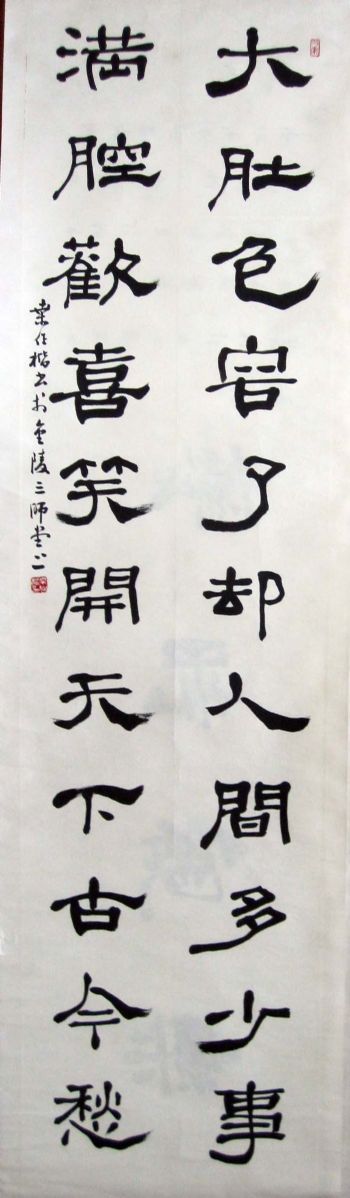 大肚包容了却人間多少事
滿腔歡喜笑開天下古今愁
楷书於金陵三師堂上